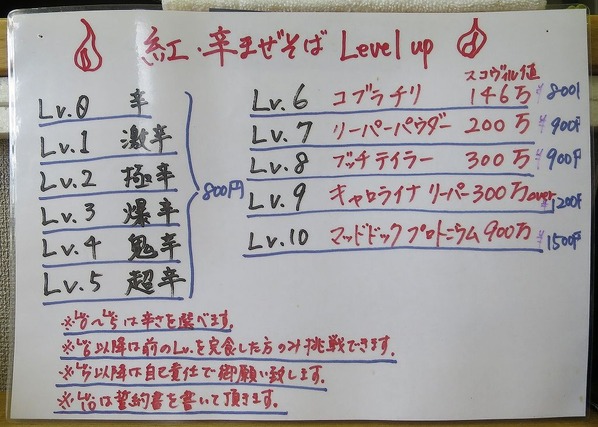 紅・辛まぜそば Level up
Lv.0 辛
Lv.1 激辛
Lv.2 極辛
Lv.3 爆辛
Lv.4 鬼辛
Lv.5 超辛
800円
スコヴィル値
Lv.6 コブラチリ 146万 800円
Lv.7 リーパーパウダー 200万 900円
Lv.8 ブッチテイラー 300万 900円
Lv.9 キャロライナリーパー 300万over 1200円
Lv.10 マッドドックプロトニウム 900万 1500円
※Lv0〜Lv5は辛さを選べます。
※Lv6以降は前のLv.を完食した方のみ挑戦できます。
※Lv7以降は自己責任で御願い致します。
※Lv10は誓約書を書いて頂きます。